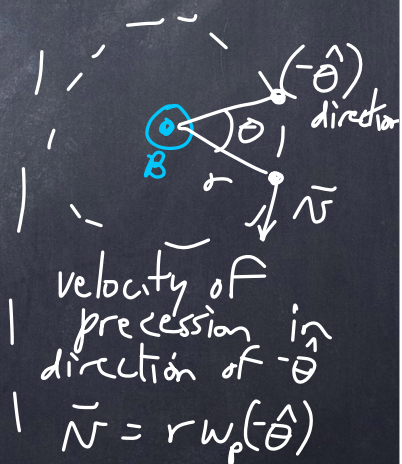 (-θ̂)
direction
θ
B
r
v̄
velocity of
precession in
direction of -θ̂
v̄ = rωₚ(-θ̂)